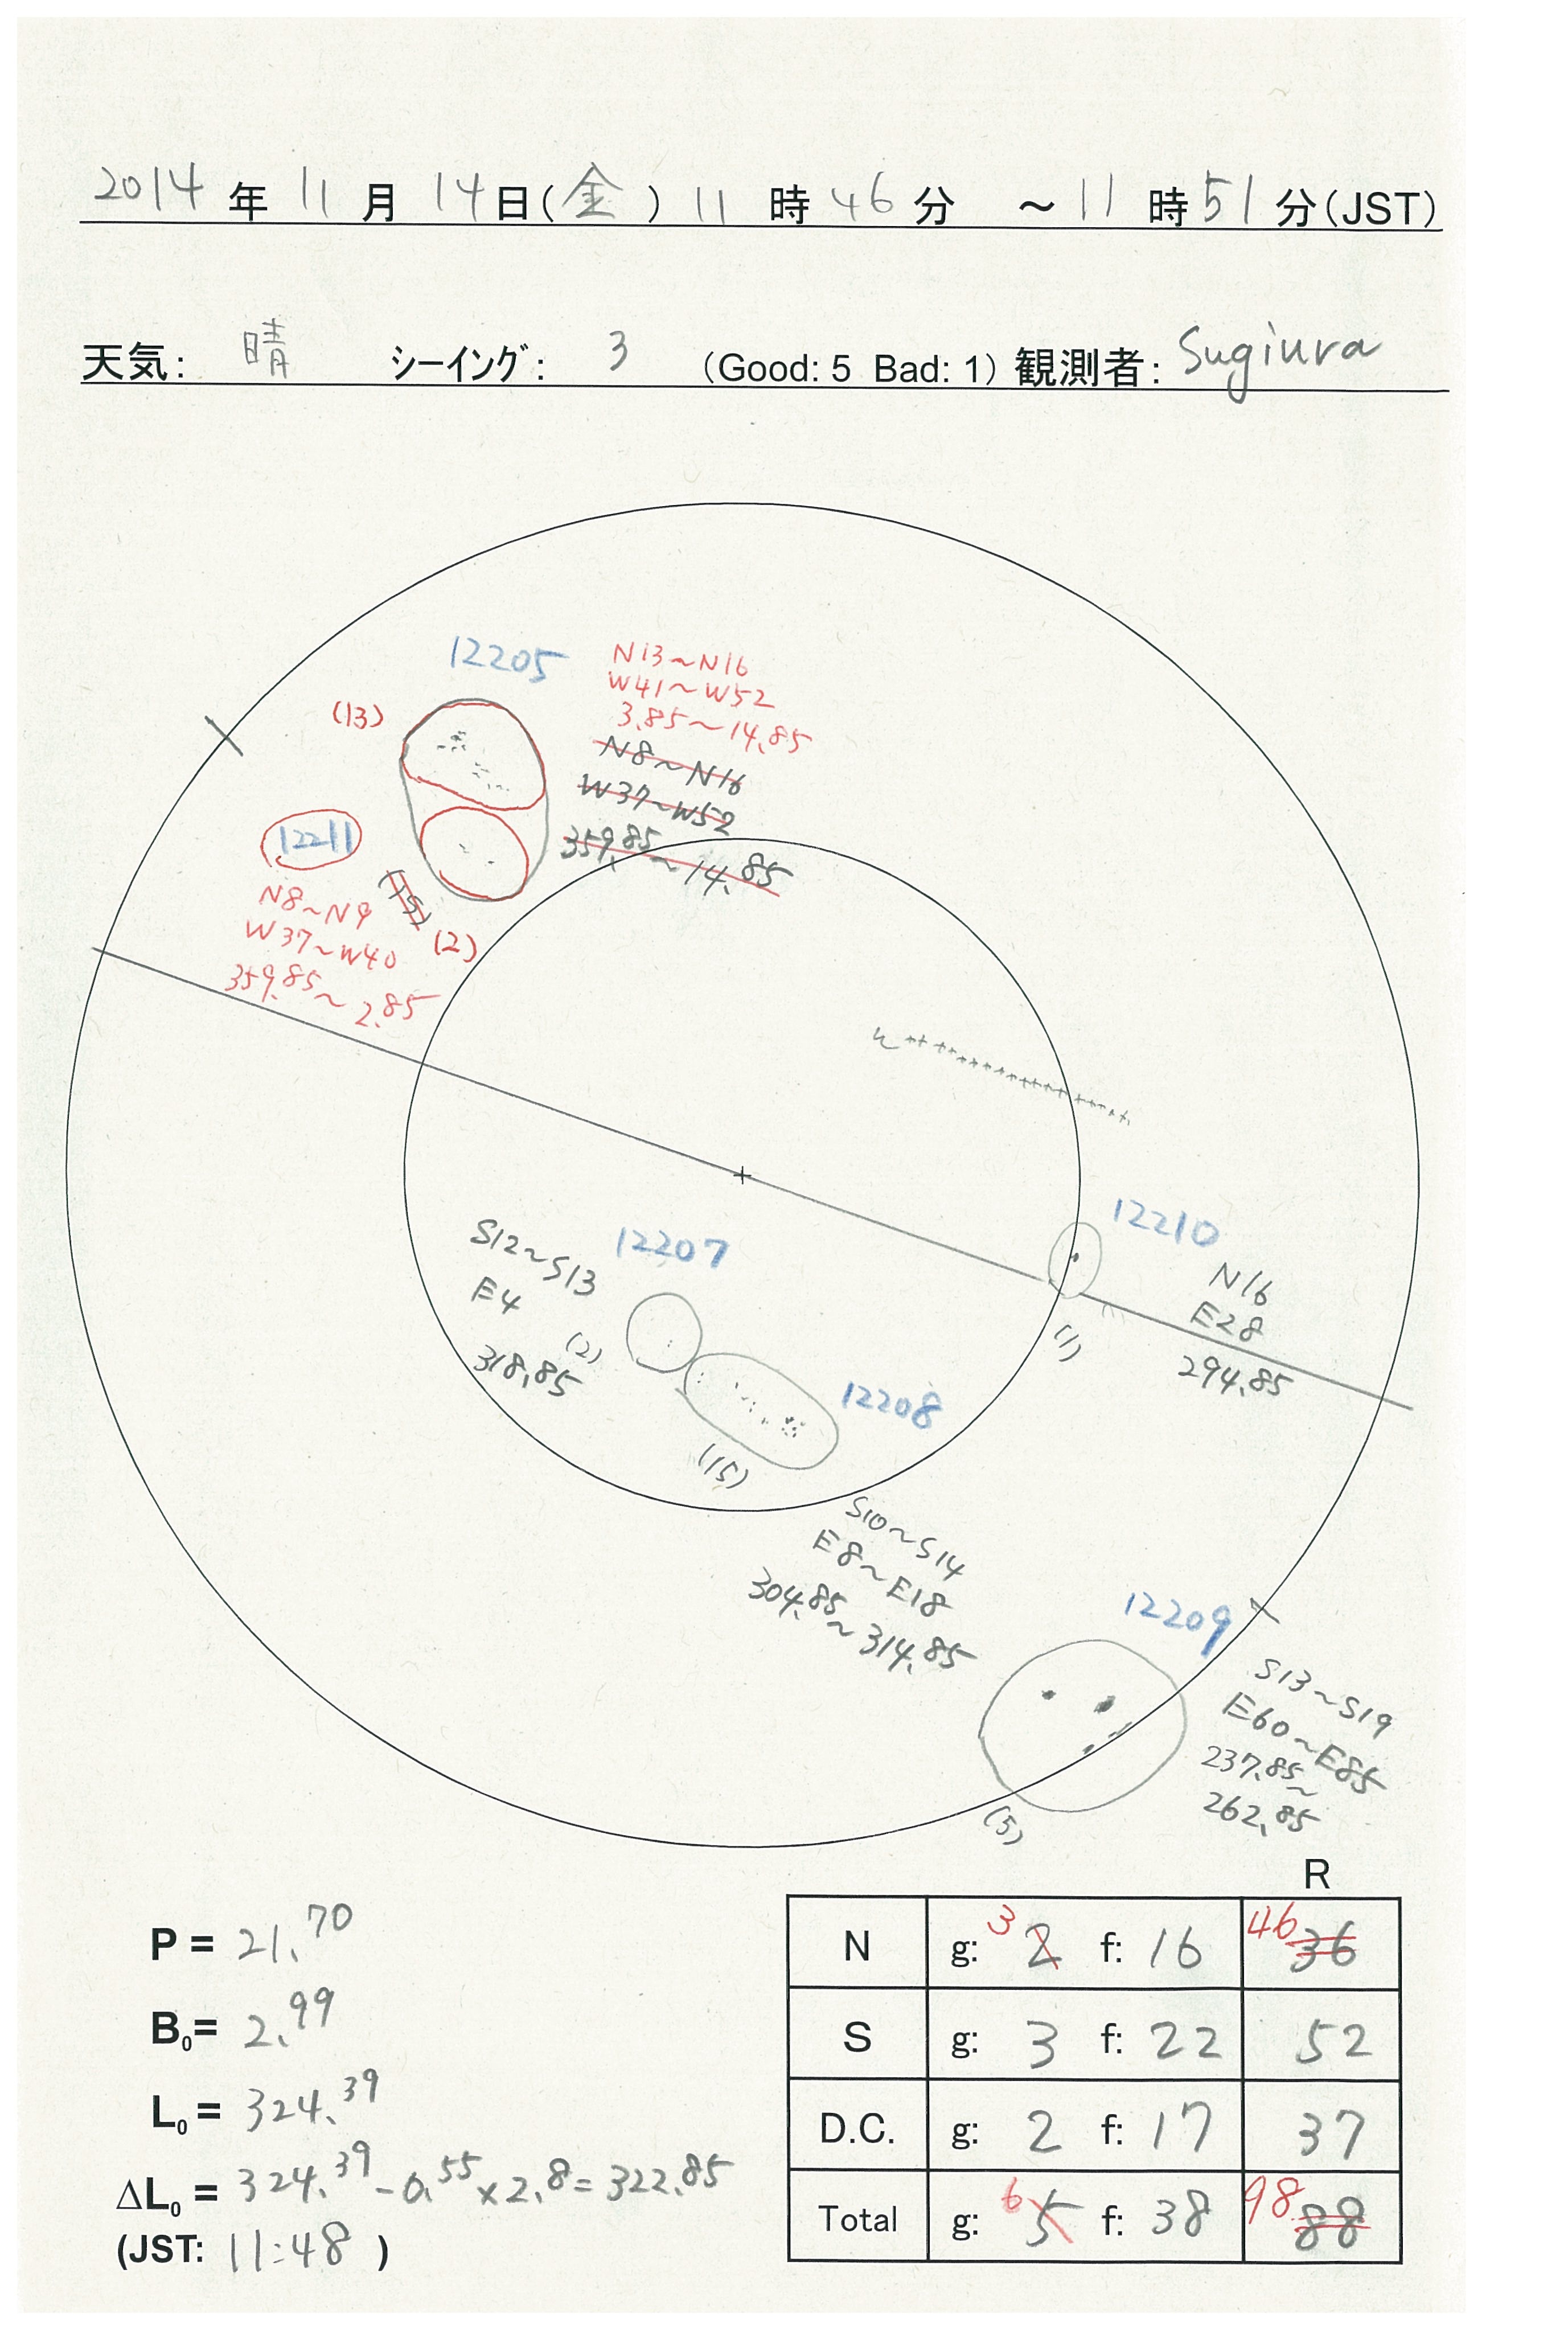 2014 年 11 月 14日(金) 11 時 46 分 ～ 11 時 51 分(JST)
天気: 晴 シーイング: 3 (Good: 5 Bad: 1) 観測者: Sugiura
12205
(13)
N13~N16
W41~W52
3.85~14.85
N8~N16
W37~W52
359.85~14.85
12211
N8~N9
W37~W40
359.85~2.85
(15)
(2)
12210
N16
E28
294.85
(1)
12207
S12~S13
E4
(2)
318.85
12208
(15)
S10~S14
E8~E18
304.85~314.85
12209
S13~S19
E60~E85
237.85~
262.85
(5)
P = 21.70
B0= 2.99
L0= 324.39
ΔL0 = 324.39-0.55×2.8=322.85
(JST: 11:48 )
R
N g: 3 2 f: 16 46 36
S g: 3 f: 22 52
D.C. g: 2 f: 17 37
Total g: 6 5 f: 38 98 88